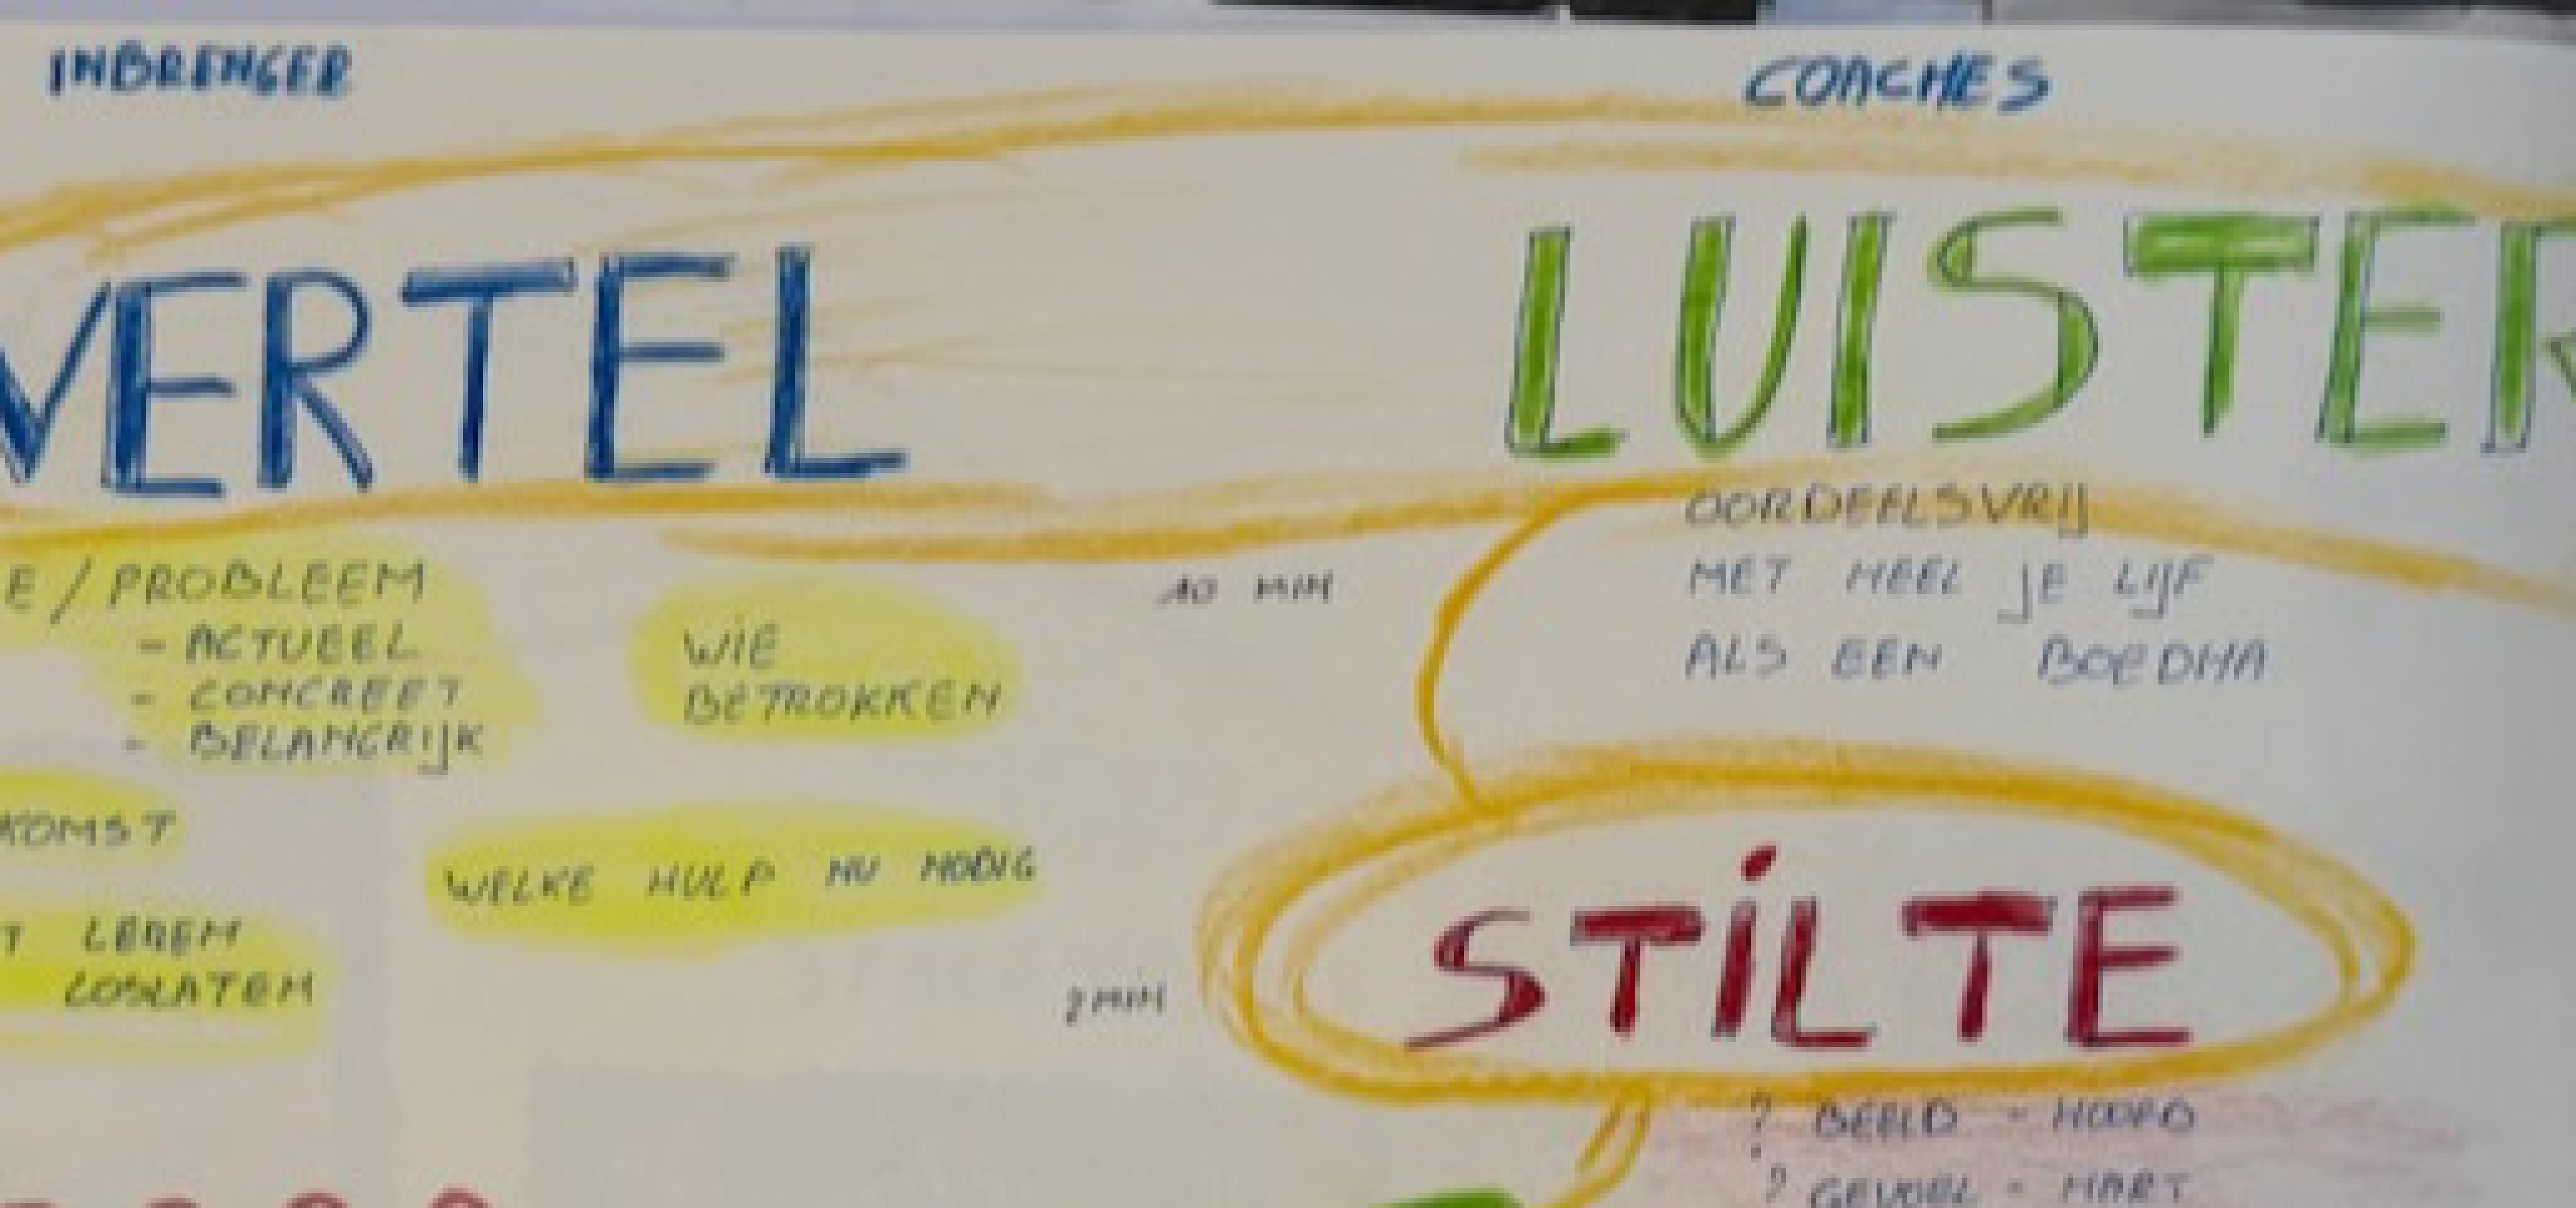 INBRENGER
COACHES
VERTEL
LUISTER
OORDEELSVRIJ
MET HEEL JE LIJF
ALS EEN BOEDHA
10 MIN
E / PROBLEEM
- ACTUEEL
- CONCREET
- BELANGRIJK
WIE
BETROKKEN
KOMST
WELKE HULP NU NODIG
T LEREN
LOSLATEN
2 MIN
STILTE
? BEELD - HOOFD
? GEVOEL - HART